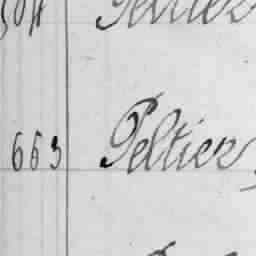 504 Peltier
663 Peltier,